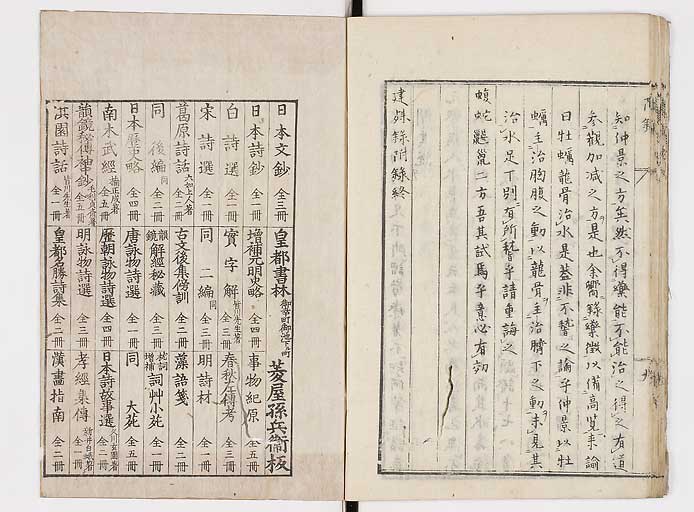 知仲景之方矣然不得藥能不能治之得之有道
参観加減之方是也余嚮録藥徴以備高覧来諭
曰牡蠣龍骨治水是蓋非不誓之論乎仲景以牡
蠣主治胸腹之動以龍骨主治臍下之動未見其
治水足下別有所誓乎請重誨之
蝮蛇二方吾其試焉乎意必有効
建殊録附録終
皇都書林 御幸町御池下ル町 菱屋孫兵衛板
日本文鈔 全三冊
日本詩鈔 全二冊
白詩選 全二冊
宋詩選 全一冊
葛原詩話 六如上人著 全二冊
同 後編 同 全二冊
日本歴史略 全四冊
南木武經 楠正成著 全五冊
韻鏡秘傳神鈔 全五冊
淇園詩話 皆川先生著 全一冊
増補元明史略 全四冊
實字解 皆川先生著 全三冊
同 二編 同 全三冊
古文後集傍訓 全二冊
韻鏡解經秘藏 全三冊
唐詠物詩選 全一冊
歷朝詠物詩選 全四冊
明詠物詩選 全三冊
皇都名勝詩集 全二冊
事物紀原 全五冊
春秋左傳考 全三冊
明詩材 全一冊
藻語箋 全二冊
增補詞艸小苑 全一冊
同 大苑
日本詩故事選 全二冊
孝經集傳
漢畫指南 全二冊